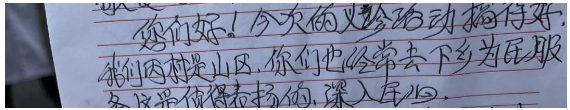 您们好！今次的义诊活动搞得好，
我们西村是山区，你们也经常去下乡为民服
务这是值得表扬的，深入民心，